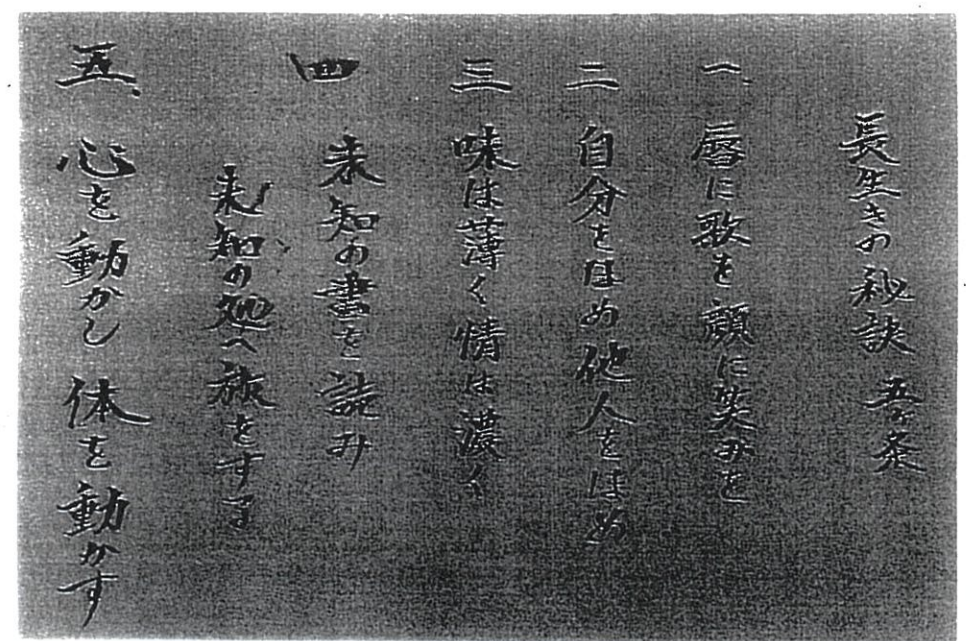 長生きの秘訣 五ヶ条
一、唇に歌を顔に笑みを
二 自分をほめ他人をほめ
三 味は薄く情は濃く
四 未知の書を読み
未知の処へ旅をする
五、心を動かし体を動かす